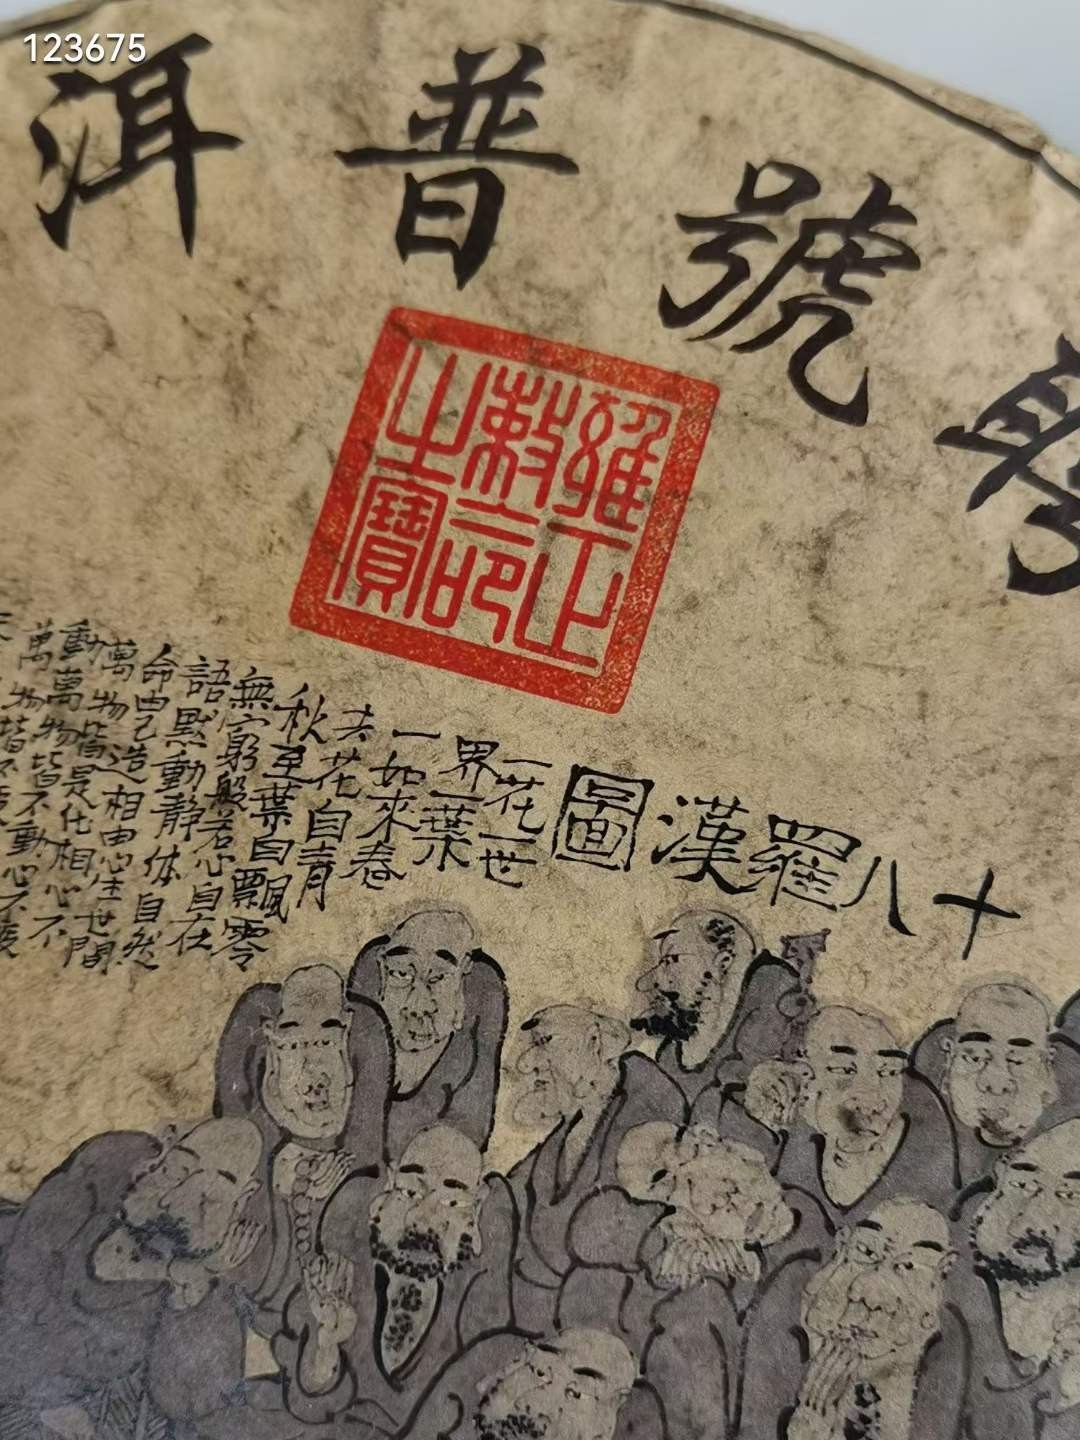 123675
號普洱
雍正
敕命
之寶
十八羅漢圖
一花一世
界一葉
一如來春
去花自青
秋至葉自飄零
無窮般若心自在
語默動靜體自然
命由己造相由心生世間
萬物皆是化相心不
動萬物皆不動心不